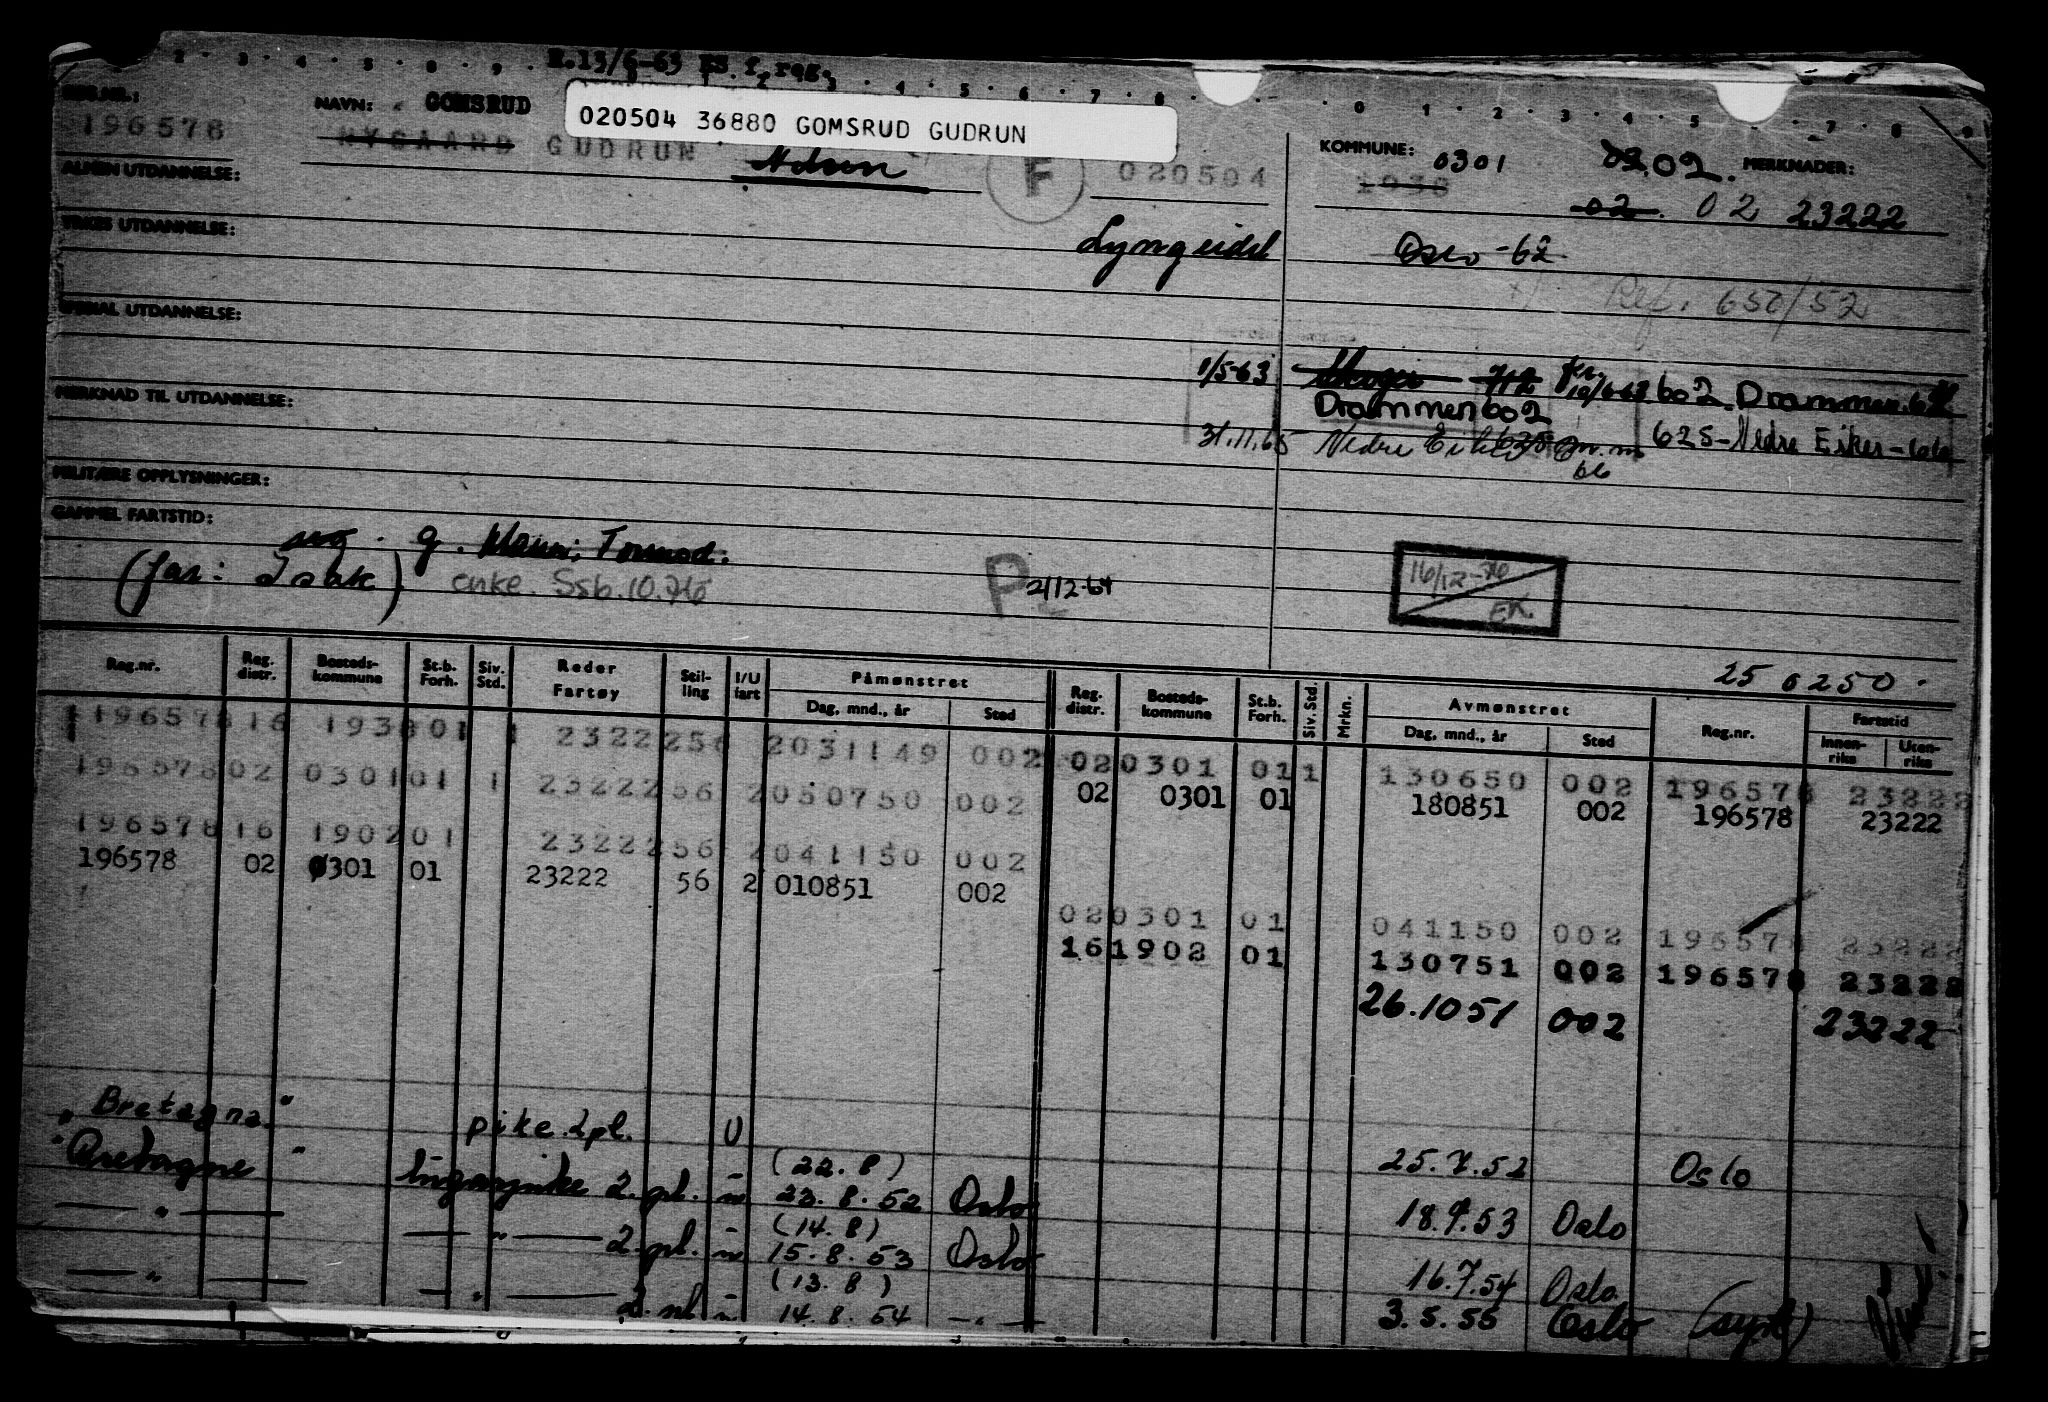 E.13/6-63 ES f. reg.
REG.NR.:
196578
NAVN: GOMSRUD
NYGAARD GUDRUN
020504 36880 GOMSRUD GUDRUN
F
020504
KOMMUNE: 0301
1938
02.02.
MERKNADER:
02. 02 23222
ALMEN UTDANNELSE:
YRKES UTDANNELSE:
Lyngseidet
Oslo -62
Ref. 652/52
SPESIAL UTDANNELSE:
1/5-63 712 10/6-63 602 Drammen. 62
MERKNAD TIL UTDANNELSE:
Drammen 602
31.11.65 Nedre Eiker 625 625 - Nedre Eiker -
MILITÆRE OPPLYSNINGER:
GAMMEL FARTSTID:
ug. g. Mann: Tormod.
(far: Isak) enke. Ssb. 10.76
P 2/12-64
16/12-76
EK.
25 6250.
Reg.nr. Reg. distr. Bosteds-kommune St.b. Forh. Siv. Std. Reder Fartøy Stil-ling I/U fart Påmønstret Dag, mnd., år Sted Reg. distr. Bosteds-kommune St.b. Forh. Siv. Std. Mrkn. Avmønstret Dag, mnd., år Sted Reg.nr. Fartstid Innen-riks Uten-riks
196578 16 1938 01 1 23222 56 2 031149 002 02 0301 01 1 130650 002 196578 23222
196578 02 0301 01 1 23222 56 2 050750 002 02 0301 01 180851 002 196578 23222
196578 16 1902 01 23222 56 2 041150 002
196578 02 0301 01 23222 56 2 010851 002
02 0301 01 041150 002 196578 23222
16 1902 01 130751 002 196578 23222
26.10 51 002 23222
"Bretagne" pike 2pl. U 25.7.52 Oslo
"Bretagne" lugarpike 2. pl. u (22.8) 23.8.52 Oslo 18.9.53 Oslo
— " — — " — 2. pl. u. (14.8) 15.8.53 Oslo 16.7.54 Oslo.
— " — — " — 2. pl. u. (13.8) 14.8.54 — " — 3.5.55 Oslo (syk)